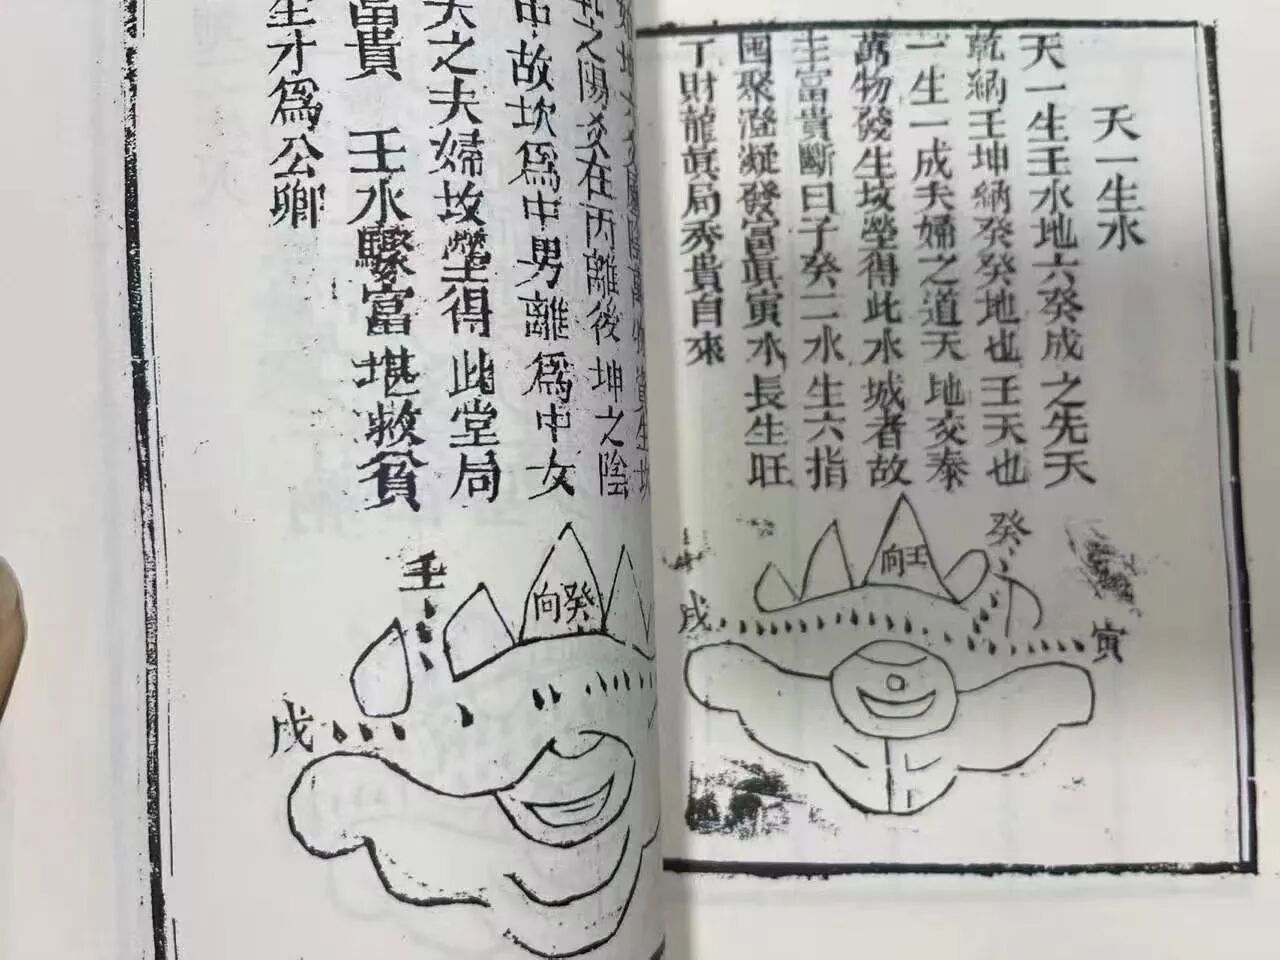 天一生水
天一生壬水地六癸成之先天
乾納壬坤納癸癸地也壬天也
一生一成夫婦之道天地交泰
萬物發生坟塋得此水城者故
主富貴斷曰子癸二水生六指
囤聚澄凝發富眞寅水長生旺
丁財龍眞局秀貴自來
癸
壬向
戌
寅
萬物皆生坎
之陽爻在內離後坤之陰
中故坎爲中男離爲中女
之夫婦坟塋得此堂局
富貴 壬水驟富堪救貧
生才爲公卿
壬
癸向
戌